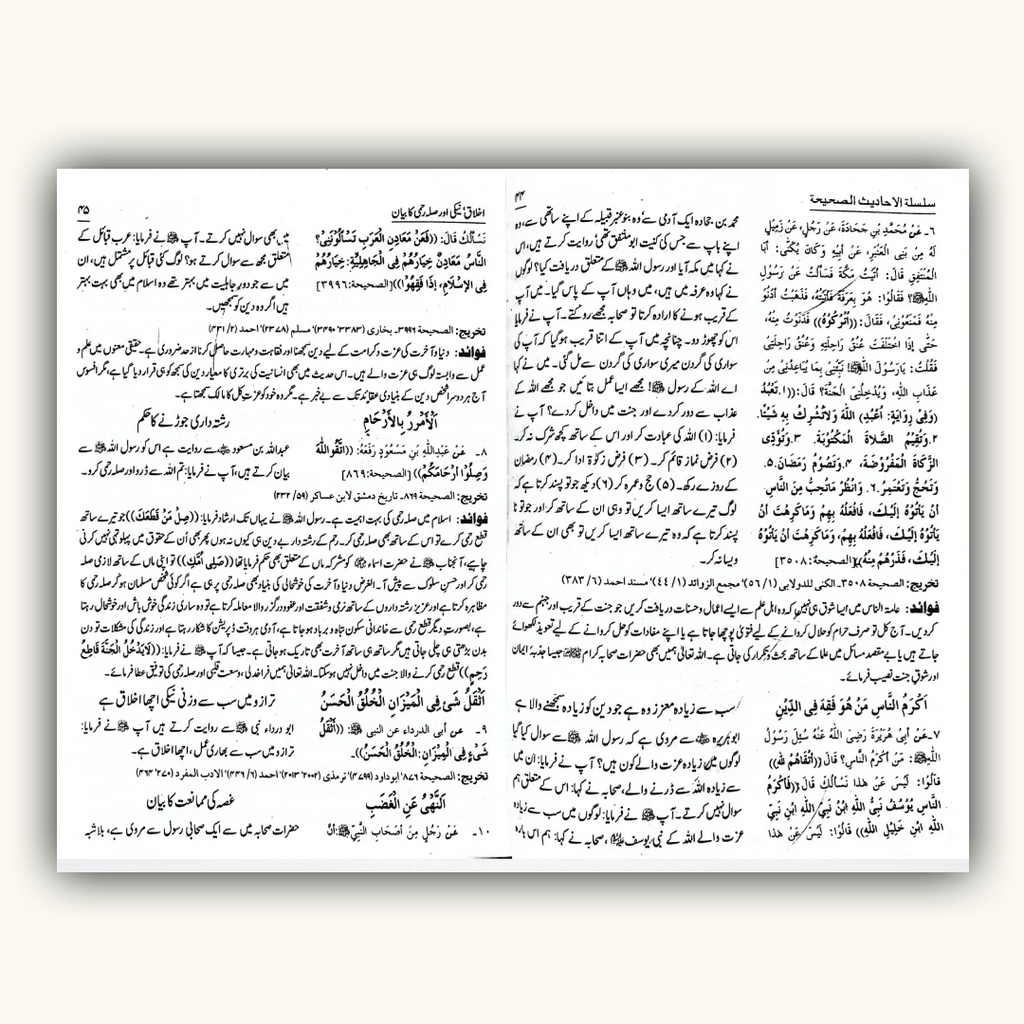 سلسلة الاحاديث الصحيحة ۴۴
٦۔ عَنْ مُحَمَّدِ بْنِ جَحَادَةَ، عَنْ رَجُلٍ، عَنْ زَمِيْلٍ
لَهُ مِنْ بَنِى الْعَنْبَرِ، عَنْ أَبِيْهِ وَكَانَ يُكَنّٰى: أَبَا
الْمُنْتَفِقِ قَالَ: أَتَيْتُ مَكَّةَ فَسَأَلْتُ عَنْ رَسُوْلِ
اللّٰهِ ﷺ؟ فَقَالُوْا: هُوَ بِعَرَفَةَ فَأَتَيْتُهُ، فَذَهَبْتُ أَدْنُوْ
مِنْهُ فَمَنَعُوْنِى، فَقَالَ: ((اُتْرُكُوْهُ)) فَدَنَوْتُ مِنْهُ،
حَتّٰى إِذَا اخْتَلَفَتْ عُنُقُ رَاحِلَتِهِ وَعُنُقُ رَاحِلَتِىْ
فَقُلْتُ: يَارَسُوْلَ اللّٰهِ ﷺ! نَبِّئْنِى بِمَا يُبَاعِدُنِىْ مِنْ
عَذَابِ اللّٰهِ، وَيُدْخِلُنِىَ الْجَنَّةَ؟ قَالَ: ((۱۔تَعْبُدُ
(وَفِىْ رِوَايَةٍ: اُعْبُدِ) اللّٰهَ وَلَاتُشْرِكْ بِهِ شَيْئًا.
۲۔وَتُقِيْمُ الصَّلَاةَ الْمَكْتُوْبَةَ. ۳۔وَتُؤَدِّى
الزَّكَاةَ الْمَفْرُوْضَةَ، ۴۔وَتَصُوْمُ رَمَضَانَ. ۵۔
وَتَحُجُّ وَتَعْتَمِرُ. ٦۔ وَانْظُرْ مَاتُحِبُّ مِنَ النَّاسِ
أَنْ يَأْتُوْهُ إِلَيْكَ، فَافْعَلْهُ بِهِمْ وَمَاكَرِهْتَ أَنْ
يَأْتُوْهُ إِلَيْكَ، فَافْعَلْهُ بِهِمْ، وَمَاكَرِهْتَ أَنْ يَأْتُوْهُ
إِلَيْكَ، فَذَرْهُمْ مِنْهُ)) [الصحيحة:۳۵۰۸]
محمد بن جحادہ ایک آدمی سے وہ بنو عنبر قبیلہ کے اپنے ساتھی سے، وہ
اپنے باپ سے جس کی کنیت ابو منتفق تھی روایت کرتے ہیں، اس
نے کہا میں مکہ آیا اور رسول اللہ ﷺ کے متعلق دریافت کیا؟ لوگوں
نے کہا وہ عرفہ میں ہیں، میں وہاں آپ کے پاس گیا۔ میں آپ
کے قریب ہونے کا ارادہ کرتا تو صحابہ مجھے روکتے۔ آپ نے فرمایا
اس کو چھوڑ دو۔ چنانچہ میں آپ کے اتنا قریب ہو گیا کہ آپ کی
سواری کی گردن میری سواری کی گردن سے مل گئی۔ میں نے کہا
اے اللہ کے رسول ﷺ! مجھے ایسا عمل بتائیں جو مجھے اللہ کے
عذاب سے دور کر دے اور جنت میں داخل کر دے؟ آپ نے
فرمایا: (۱) اللہ کی عبادت کر اور اس کے ساتھ کچھ شرک نہ کر۔
(۲) فرض نماز قائم کر۔ (۳) فرض زکوٰۃ ادا کر۔ (۴) رمضان
کے روزے رکھ۔ (۵) حج و عمرہ کر (٦) دیکھ جو تو پسند کرتا ہے کہ
لوگ تیرے ساتھ ایسا کریں تو وہی ان کے ساتھ کر اور جو تو نا
پسند کرتا ہے کہ وہ تیرے ساتھ ایسا کریں تو بھی ان کے ساتھ
ویسا نہ کر۔
تخریج: الصحيحة ۳۵۰۸۔ الكنى للدولابی (۱/ ۵٦)' مجمع الزوائد (۱/ ۴۴)' مسند احمد (٦/ ۳۸۳)
فوائد: عامۃ الناس میں ایسا شوق ہی نہیں کہ وہ اہل علم سے ایسے اعمال و حسنات دریافت کریں جو جنت کے قریب اور جہنم سے دور
کر دیں۔ آج کل تو صرف حرام کو حلال کروانے کے لیے فتویٰ پوچھا جاتا ہے یا اپنے مفادات کو حل کروانے کے لیے تعویذ لکھوائے
جاتے ہیں یا بے مقصد مسائل میں علما کے ساتھ بحث و تکرار کی جاتی ہے۔ اللہ تعالیٰ ہمیں بھی حضرات صحابہ کرام جیسا جذبہ ایمان
اور شوق جنت نصیب فرمائے۔
اَكْرَمُ النَّاسِ مَنْ هُوَ فَقِهَ فِى الدِّيْنِ
سب سے زیادہ معزز وہ ہے جو دین کو زیادہ سمجھنے والا ہے
۷۔عَنْ أَبِىْ هُرَيْرَةَ رَضِىَ اللّٰهُ عَنْهُ سُئِلَ رَسُوْلُ
اللّٰهِ ﷺ: مَنْ أَكْرَمُ النَّاسِ؟ قَالَ ((أَتْقَاهُمْ لِلّٰهِ))
قَالُوْا: لَيْسَ عَنْ هٰذَا نَسْأَلُكَ قَالَ ((فَأَكْرَمُ
النَّاسِ يُوْسُفُ نَبِىُّ اللّٰهِ ابْنُ نَبِىِّ اللّٰهِ ابْنِ نَبِىِّ
اللّٰهِ ابْنِ خَلِيْلِ اللّٰهِ)) قَالُوْا: لَيْسَ عَنْ هٰذَا
ابو ہریرہ سے مروی ہے کہ رسول اللہ ﷺ سے سوال کیا گیا
لوگوں میں زیادہ عزت والے کون ہیں؟ آپ نے فرمایا: ان میں
سے زیادہ اللہ سے ڈرنے والے، صحابہ نے کہا: اس کے متعلق ہم
سوال نہیں کرتے۔ آپ ﷺ نے فرمایا: لوگوں میں سب سے زیادہ
عزت والے اللہ کے نبی یوسف، صحابہ نے کہا: ہم اس بارہ
اخلاق' نیکی اور صلہ رحمی کا بیان ۴۵
نَسْأَلُكَ قَالَ: ((فَعَنْ مَعَادِنِ الْعَرَبِ تَسْأَلُوْنِىْ؟
النَّاسُ مَعَادِنُ خِيَارُهُمْ فِى الْجَاهِلِيَّةِ: خِيَارُهُمْ
فِى الْإِسْلَامِ، إِذَا فَقِهُوْا))[الصحيحة:۳۹۹٦]
میں بھی سوال نہیں کرتے۔ آپ ﷺ نے فرمایا: عرب قبائل کے
متعلق مجھ سے سوال کرتے ہو؟ لوگ کئی قبائل پر مشتمل ہیں، ان
میں سے جو دور جاہلیت میں بہتر تھے وہ اسلام میں بھی بہت بہتر
ہیں اگر وہ دین کو سمجھیں۔
تخریج: الصحيحة ۳۹۹٦۔ بخاری (۳۳۸۳' ۳۴۹۰)' مسلم (۲۳۷۸)' احمد (۲/ ۴۳۱)
فوائد: دنیا و آخرت کی عزت و کرامت کے لیے دین سمجھنا اور فقاہت و مہارت حاصل کرنا از حد ضروری ہے۔ حقیقی معنوں میں علم و
عمل سے وابستہ لوگ ہی عزت والے ہیں۔ اس حدیث میں بھی انسانیت کی برتری کا معیار دین کی سمجھ کو ہی قرار دیا گیا ہے، مگر افسوس
آج ہر دوسرا شخص دین کے بنیادی عقائد تک سے بے خبر ہے۔ مگر وہ خود کو عزت کل کا مالک سمجھتا ہے۔
اَلْأَمْرُ بِالْأَرْحَامِ
رشتہ داری جوڑنے کا حکم
۸۔ عَنْ عَبْدِاللّٰهِ بْنِ مَسْعُوْدٍ رَفَعَهُ: ((اِتَّقُوا اللّٰهَ
وَصِلُوْا اَرْحَامَكُمْ)) [الصحيحة:۸٦۹]
عبداللہ بن مسعود سے روایت ہے اس کو رسول اللہ ﷺ سے
بیان کرتے ہیں، آپ نے فرمایا: تم اللہ سے ڈرو اور صلہ رحمی کرو۔
تخریج: الصحيحة ۸٦۹۔ تاریخ دمشق لابن عساکر (۵۹/ ۲۳۲)
فوائد: اسلام میں صلہ رحمی کی بہت اہمیت ہے۔ رسول اللہ ﷺ نے یہاں تک ارشاد فرمایا: ((صِلْ مَنْ قَطَعَكَ)) جو تیرے ساتھ
قطع رحمی کرے تو اس کے ساتھ بھی صلہ رحمی کر۔ رحم کے رشتہ دار بے دین ہی کیوں نہ ہوں پھر بھی اُن کے حقوق میں پہلو تہی نہیں کرنی
چاہیے، آنجناب ﷺ نے حضرت اسماء کو مشرکہ ماں کے متعلق بھی حکم فرمایا تھا ((صَلِى أُمَّكِ)) تو اپنی ماں کے ساتھ لازمی صلہ
رحمی کر اور حسن سلوک سے پیش آ۔ الغرض دنیا و آخرت کی خوشحالی کی بنیاد بھی صلہ رحمی پر ہی ہے اگر کوئی شخص مسلمان ہو کر صلہ رحمی کا
مظاہرہ کرتا ہے اور عزیز رشتہ داروں کے ساتھ نرمی و شفقت اور عفو و درگزر والا معاملہ کرتا ہے تو وہ ساری زندگی خوش باش اور خوشحال رہتا
ہے، بصورتِ دیگر قطع رحمی سے خاندانی سکون تباہ و برباد ہو جاتا ہے، آدمی ہر وقت ڈپریشن کا شکار رہتا ہے اور زندگی کی مشکلات تو دن
بدن بڑھتی ہی چلی جاتی ہیں مگر ساتھ ہی ساتھ آخرت بھی تاریک ہو جاتی ہے۔ جیسا کہ آپ ﷺ نے فرمایا: ((لَا يَدْخُلُ الْجَنَّةَ قَاطِعُ
رَحِمٍ)) قطع رحمی کرنے والا جنت میں داخل نہیں ہو سکتا۔ اللہ تعالیٰ ہمیں فراخدلی، وسعت قلبی اور صلہ رحمی کی توفیق عطا فرمائے۔
أَثْقَلُ شَىْءٍ فِى الْمِيْزَانِ الْخُلُقُ الْحَسَنُ
ترازو میں سب سے وزنی نیکی اچھا اخلاق ہے
۹۔ عن أبى الدرداء عن النبى ﷺ: ((أَثْقَلُ
شَىْءٍ فِى الْمِيْزَانِ: الْخُلُقُ الْحَسَنُ))۔
ابو درداء نبی ﷺ سے روایت کرتے ہیں آپ ﷺ نے فرمایا:
ترازو میں سب سے بھاری عمل، اچھا اخلاق ہے۔
تخریج: الصحيحة ۸۷٦' ابوداود (۴۷۹۹)' ترمذی (۲۰۰۲' ۲۰۱۳)' احمد (٦/ ۴۴٦)' الادب المفرد (۲۷۰' ۴٦۴)
اَلنَّهْىُ عَنِ الْغَضَبِ
غصہ کی ممانعت کا بیان
۱۰۔ عَنْ رَجُلٍ مِنْ أَصْحَابِ النَّبِىِّ ﷺ: أَنَّ
حضرات صحابہ میں سے ایک صحابی رسول سے مروی ہے، بلا شبہ